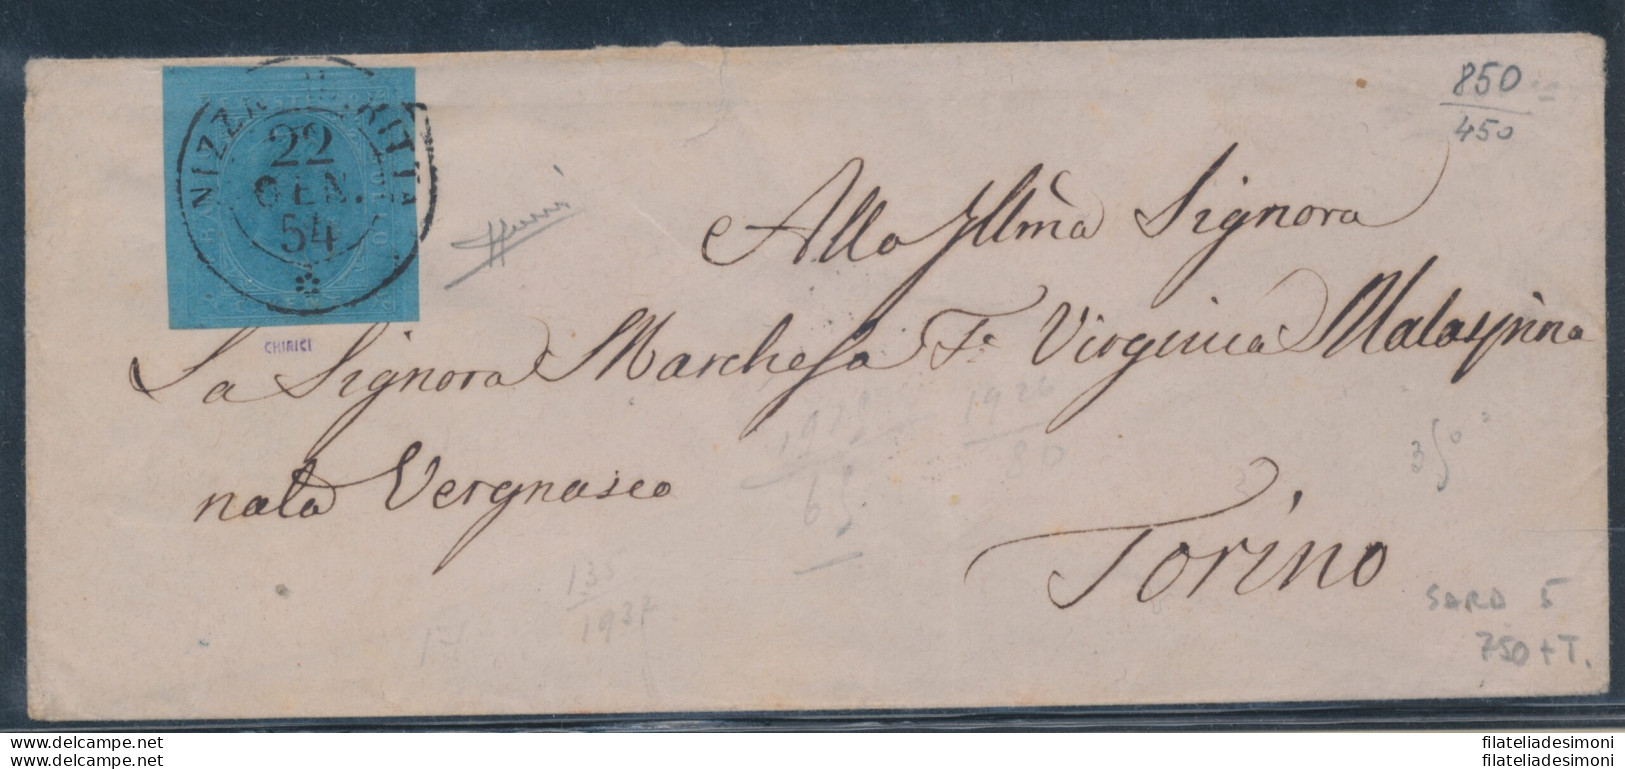 22
GEN.
54
CHIRICI
850
450
Alla Illma Signora
La Signora Marchesa Fa Virginia Malaspina
nata Vergnasco
Torino
1926
80
65
135
1937
350
SARD 5
750 + T.
www.delcampe.net
filateliadesimoni
www.delcampe.net
filateliadesimoni